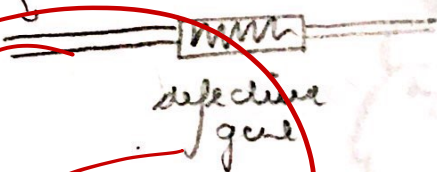 defective
gene